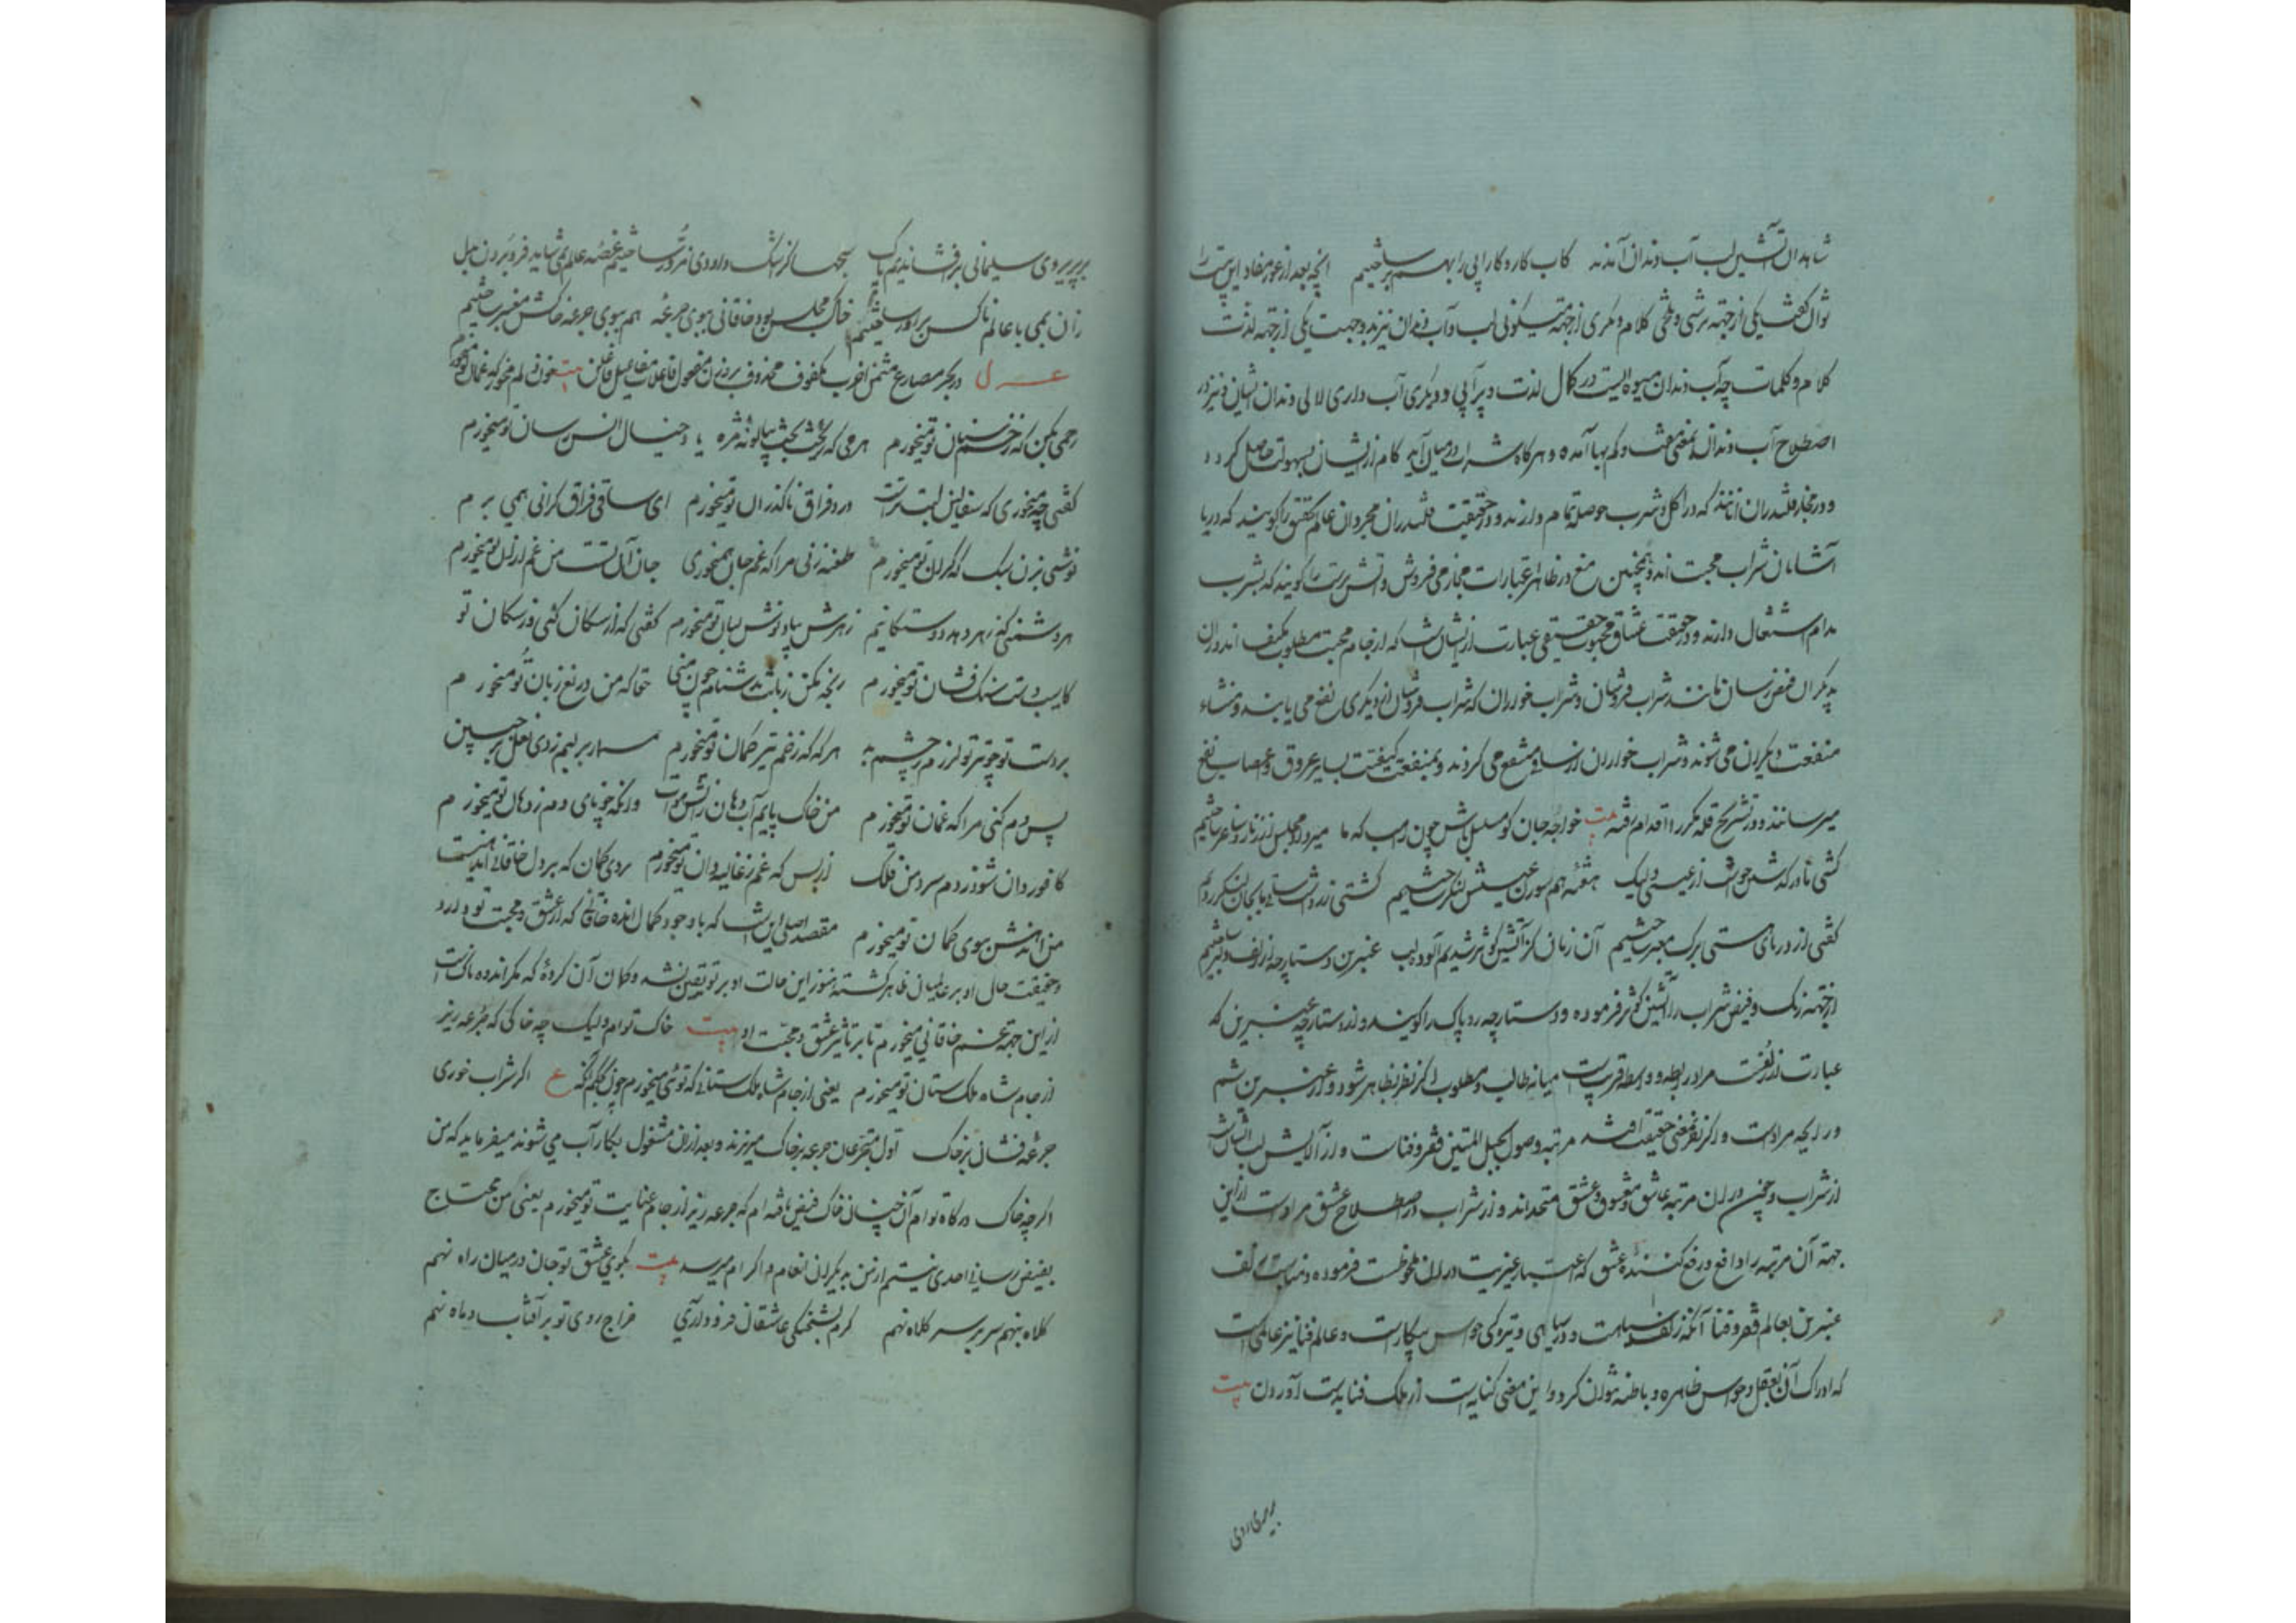 شاهدان آتشین لب آب دندان آمدند کاب کار و کار آبی را بهم بر ساختیم آنچه بعد از غور مفاد این بیت را
توان گفت یکی از جهته ترشی و تلخی کلام و دیگری از جهته نیکوئی لب و آب دندان نیز بدو جهت یکی از جهته لذت
کلام و کلمات چه آب دندان میوه ایست در کمال لذت و پر آبی و دیگری آب داری لالی دندان ایشان و نیز در
اصطلاح آب دندان بمعنی مفت و کم بها آمده و هر گاه شراب در میان آید کام از ایشان بسهولت حاصل گردد
و در مجاز قلندران آنانند که در اکل و شرب حوصله تمام دارند و در حقیقت قلندران مجردان عالم تحقیق را گویند که دریا
آشامان شراب محبت اند و همچنین مغ در ظاهر عبارات مجاز می فروش و آتش پرست را گویند که بشرب
مدام اشتغال دارند و در حقیقت عشاق محبوب حقیقی عبارت از ایشان است که از جام محبت مطلوب مکیف اند و از آن
بدیگران فیض رسان مانند شراب فروشان و شراب خواران که شراب فروشان از دیگری نفع می یابند و منشاء
منفعت دیگران می شوند و شراب خواران از ساقی منتفع می گردند و بمنفعت کیفیت بسایر عروق و اعصاب نفع
میرسانند و در تشریح قله مکرر اقدام رفته بیت خواجه جان گو مسلسل باش چون راهب که ما میر داد مجلس از زنار و ساغر ساختیم
کشتی ما در گذشت خواست از عیسی ولیک هفته هم سوزن عیسیش لنگر ساختیم کشتی زر داشت ساقی ما بجان لنگر زدیم
گفتی از دریای هستی برگ معبر ساختیم آن زمان کز آتشین کوثر شدیم آلوده لب عنبرین دستارچه از زلف دلبر ساختیم
از جهته رنگ و فیض شراب را آتشین کوثر فرموده و دستارچه رو پاک را گویند و از دستارچه عنبرین که
عبارت از زلفست مراد رابطه و واسطه قربیست میانه طالب و مطلوب اگر نظر بظاهر شود و از عنبرین شم
و رایحه مرادست و اگر نظر بمعنی حقیقت افتد مرتبه وصول بحبل المتین فقر و فناست و از آلایش لب آتشین است
از شراب و چون در آن مرتبه عاشق و معشوق و عشق متحداند و از شراب در اصطلاح عشق مرادست از این
جهته آن مرتبه را دافع و رفع کننده عشق که اعتبار غیریت در آن ملحوظست فرموده و مناسبت زلف
عنبرین بعالم فقر و فنا آنکه زلف سیاهست و در سیاهی و تیرگی حواس بیکارست و عالم فنا نیز عالمی است
که ادراک آن بعقل و حواس ظاهره و باطنه نتوان کرد و این معنی کنایه است از ملک فنا بدست آوردن بیت
بر پریروی
بر پریروی سلیمانی بر افشاندیم پاک سبحها کز اشک داودی مزور ساختیم غصه عالم نمی شاید فرو بردن بدل
زان بمی با عالم ناکس برادر ساختیم خاک مجلس بود خاقانی ببوی جرعه هم ببوی جرعه خاکش معنبر ساختیم
غزل در بحر مضارع مثمن اخرب مکفوف محذوف بر وزن مفعول فاعلات مفاعیل فاعلن بیت خون دلم مخور که غمان تو میخورم
رحمی بکن که زخم سنان تو میخورم هر می که ریخت بخت بپیالونه مژه با خیال انس رسان تو میخورم
گفتی چه میخوری که سفالین لبت ترست درد فراق ناگذران تو میخورم ای ساقی فراق گرانی همی برم
نوشی بزن سبک که گران تو میخورم طعنه زنی مرا که غم جان همی خوری جان آن تست من غم از آن تو میخورم
هر دشمنی که زهر دهد دوستکانیم زهرش بیاد نوش لبان تو میخورم گفتی که از سگان کئی از سگان تو
کاسیب دست سنگ فشان تو میخورم رنجه مکن زبانت بدشنام چون منی حقا که من دریغ زبان تو میخورم
بر دست تو چو تیر تو لرزم ز چشم بد هر گه که زخم تیر کمان تو میخورم مسمار بر لبم زدی و نعل بر جبین
پس دم کنی مرا که غمان تو میخورم من خاک پایم آب دهان زاتش هوات وانگه چو نای دمه ز دهان تو میخورم
کافوردان شود ز دم سرد من فلک از بس که غم ز غالیه دان تو میخورم بردی گمان که بر دل خاقانی اندهیست
من انده نش ببوی گمان تو میخورم مقصد اصلی این است که با وجود کمال انده خاقانی که از عشق و محبت تو دارد
و حقیقت حال او بر عالمیان ظاهر گشته هنوز این حالت او بر تو یقین نشد و گمان آن کردهٔ که مگر اندوه ناک است
از این جهته غم خاقانی میخورم تا بر تاثیر عشق و محبت او بیت خاک توام ولیک چه خاکی که جرعه ریز
از جام شاه ملک ستان تو میخورم یعنی از جام شاه ملک ستانی که توئی میخورم چون بحکم آنکه ع اگر شراب خوری
جرعهٔ فشان بر خاک اول متجرعان جرعه بر خاک میریزند و بعد از آن مشغول بکار آب می شوند میفرماید که من
اگر چه خاک درگاه توام آن چنان خاک فیض یافته ام که جرعه ریز از جام عنایت تو میخورم یعنی من محتاج
بفیض رسانی احدی نیستم از من بدیگران انعام و اکرام میرسد بیت بکوی عشق تو جان در میان راه نهم
کلاه بنهم سر بر سر کلاه نهم گرم بشحنگی عاشقان فرود آری خراج روی تو بر آفتاب و ماه نهم